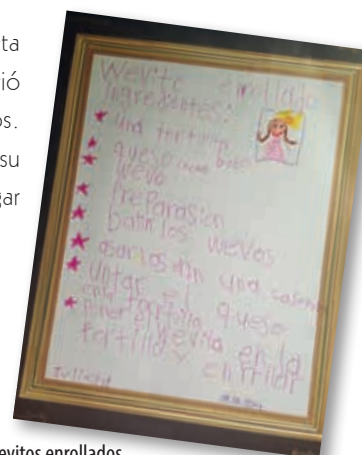 ta
ió
os.
su
gar
Wevito enrollado
Ingredientes:
una tortilla
queso
wevo
Preparasion
batir los wevos
asarlos en una
untar el queso
tortilla
poner wevito en la
tortilla y enrrllar
evitos enrollados